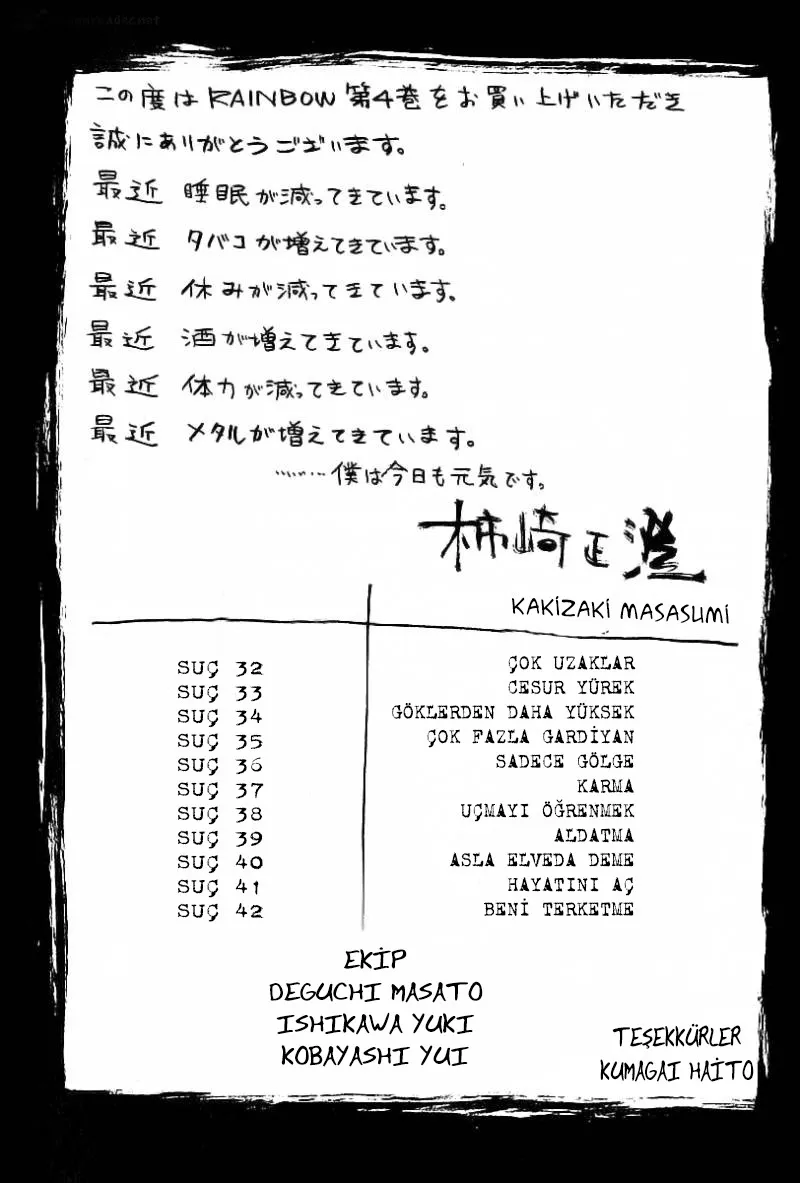 この度は RAINBOW 第4巻をお買い上げいただき
誠にありがとうございます。
最近 睡眠が減ってきています。
最近 タバコが増えてきています。
最近 休みが減ってきています。
最近 酒が増えてきています。
最近 体力が減ってきています。
最近 メタルが増えてきています。
………僕は今日も元気です。
柿崎正澄
KAKİZAKİ MASASUMİ
SUÇ 32 ÇOK UZAKLAR
SUÇ 33 CESUR YÜREK
SUÇ 34 GÖKLERDEN DAHA YÜKSEK
SUÇ 35 ÇOK FAZLA GARDİYAN
SUÇ 36 SADECE GÖLGE
SUÇ 37 KARMA
SUÇ 38 UÇMAYI ÖĞRENMEK
SUÇ 39 ALDATMA
SUÇ 40 ASLA ELVEDA DEME
SUÇ 41 HAYATINI AÇ
SUÇ 42 BENİ TERKETME
EKİP
DEGUCHI MASATO
ISHIKAWA YUKI
KOBAYASHI YUI
TEŞEKKÜRLER
KUMAGAI HAİTO